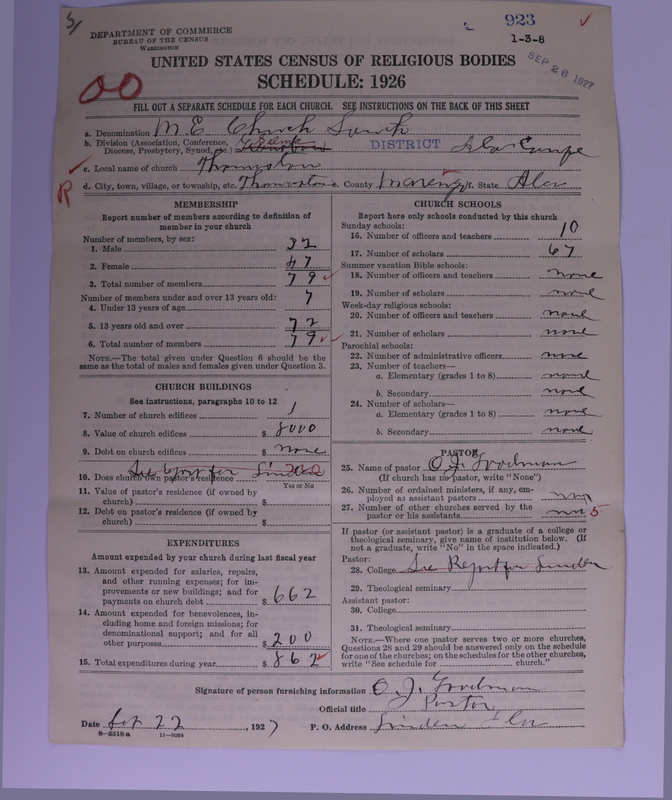 923
DEPARTMENT OF COMMERCE
BUREAU OF THE CENSUS
WASHINGTON
1-3-8
SEP 26 1927
UNITED STATES CENSUS OF RELIGIOUS BODIES
SCHEDULE: 1926
00
FILL OUT A SEPARATE SCHEDULE FOR EACH CHURCH. SEE INSTRUCTIONS ON THE BACK OF THIS SHEET
a. Denomination M. E. Church South
b. Division (Association, Conference, Diocese, Presbytery, Synod, etc.) Selma DISTRICT Ala Conf
c. Local name of church Thomaston
R
d. City, town, village, or township, etc. Thomaston e. County Marengo f. State Ala
MEMBERSHIP
Report number of members according to definition of
member in your church
Number of members, by sex:
1. Male 32
2. Female 47
3. Total number of members 79
Number of members under and over 13 years old:
4. Under 13 years of age 7
5. 13 years old and over 72
6. Total number of members 79
NOTE.—The total given under Question 6 should be the
same as the total of males and females given under Question 3.
CHURCH BUILDINGS
See instructions, paragraphs 10 to 12
7. Number of church edifices 1
8. Value of church edifices $ 8000
9. Debt on church edifices $ none
See Report for Linden
10. Does church own pastor's residence
Yes or No
11. Value of pastor's residence (if owned by
church) $
12. Debt on pastor's residence (if owned by
church) $
EXPENDITURES
Amount expended by your church during last fiscal year
13. Amount expended for salaries, repairs,
and other running expenses; for im-
provements or new buildings; and for
payments on church debt $ 662
14. Amount expended for benevolences, in-
cluding home and foreign missions; for
denominational support; and for all
other purposes $ 200
15. Total expenditures during year $ 862
CHURCH SCHOOLS
Report here only schools conducted by this church
Sunday schools:
16. Number of officers and teachers 10
17. Number of scholars 67
Summer vacation Bible schools:
18. Number of officers and teachers none
19. Number of scholars none
Week-day religious schools:
20. Number of officers and teachers none
21. Number of scholars none
Parochial schools:
22. Number of administrative officers none
23. Number of teachers—
a. Elementary (grades 1 to 8) none
b. Secondary none
24. Number of scholars—
a. Elementary (grades 1 to 8) none
b. Secondary none
PASTOR
25. Name of pastor O. J. Goodman
(If church has no pastor, write "None")
26. Number of ordained ministers, if any, em-
ployed as assistant pastors none
27. Number of other churches served by the
pastor or his assistants 5
If pastor (or assistant pastor) is a graduate of a college or
theological seminary, give name of institution below. (If
not a graduate, write "No" in the space indicated.)
Pastor:
28. College See Report for Linden
29. Theological seminary
Assistant pastor:
30. College
31. Theological seminary
NOTE.—Where one pastor serves two or more churches,
Questions 28 and 29 should be answered only on the schedule
for one of the churches; on the schedules for the other churches,
write "See schedule for church."
Signature of person furnishing information O. J. Goodman
Official title Pastor
Date Sep 22, 1927 P. O. Address Linden Ala
8-5518a 11-9034